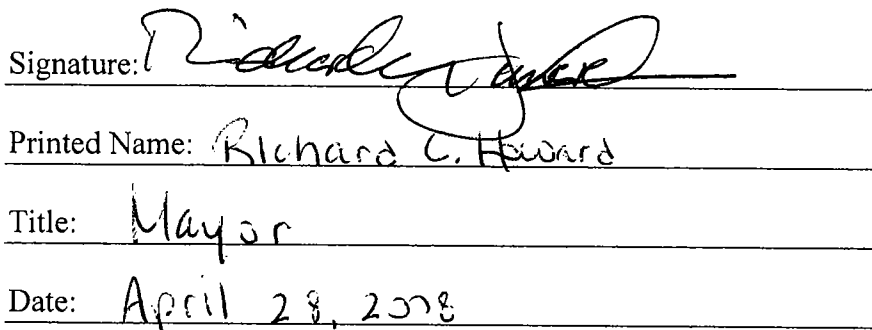 Signature: Richard C. Howard
Printed Name: Richard C. Howard
Title: Mayor
Date: April 28, 2008